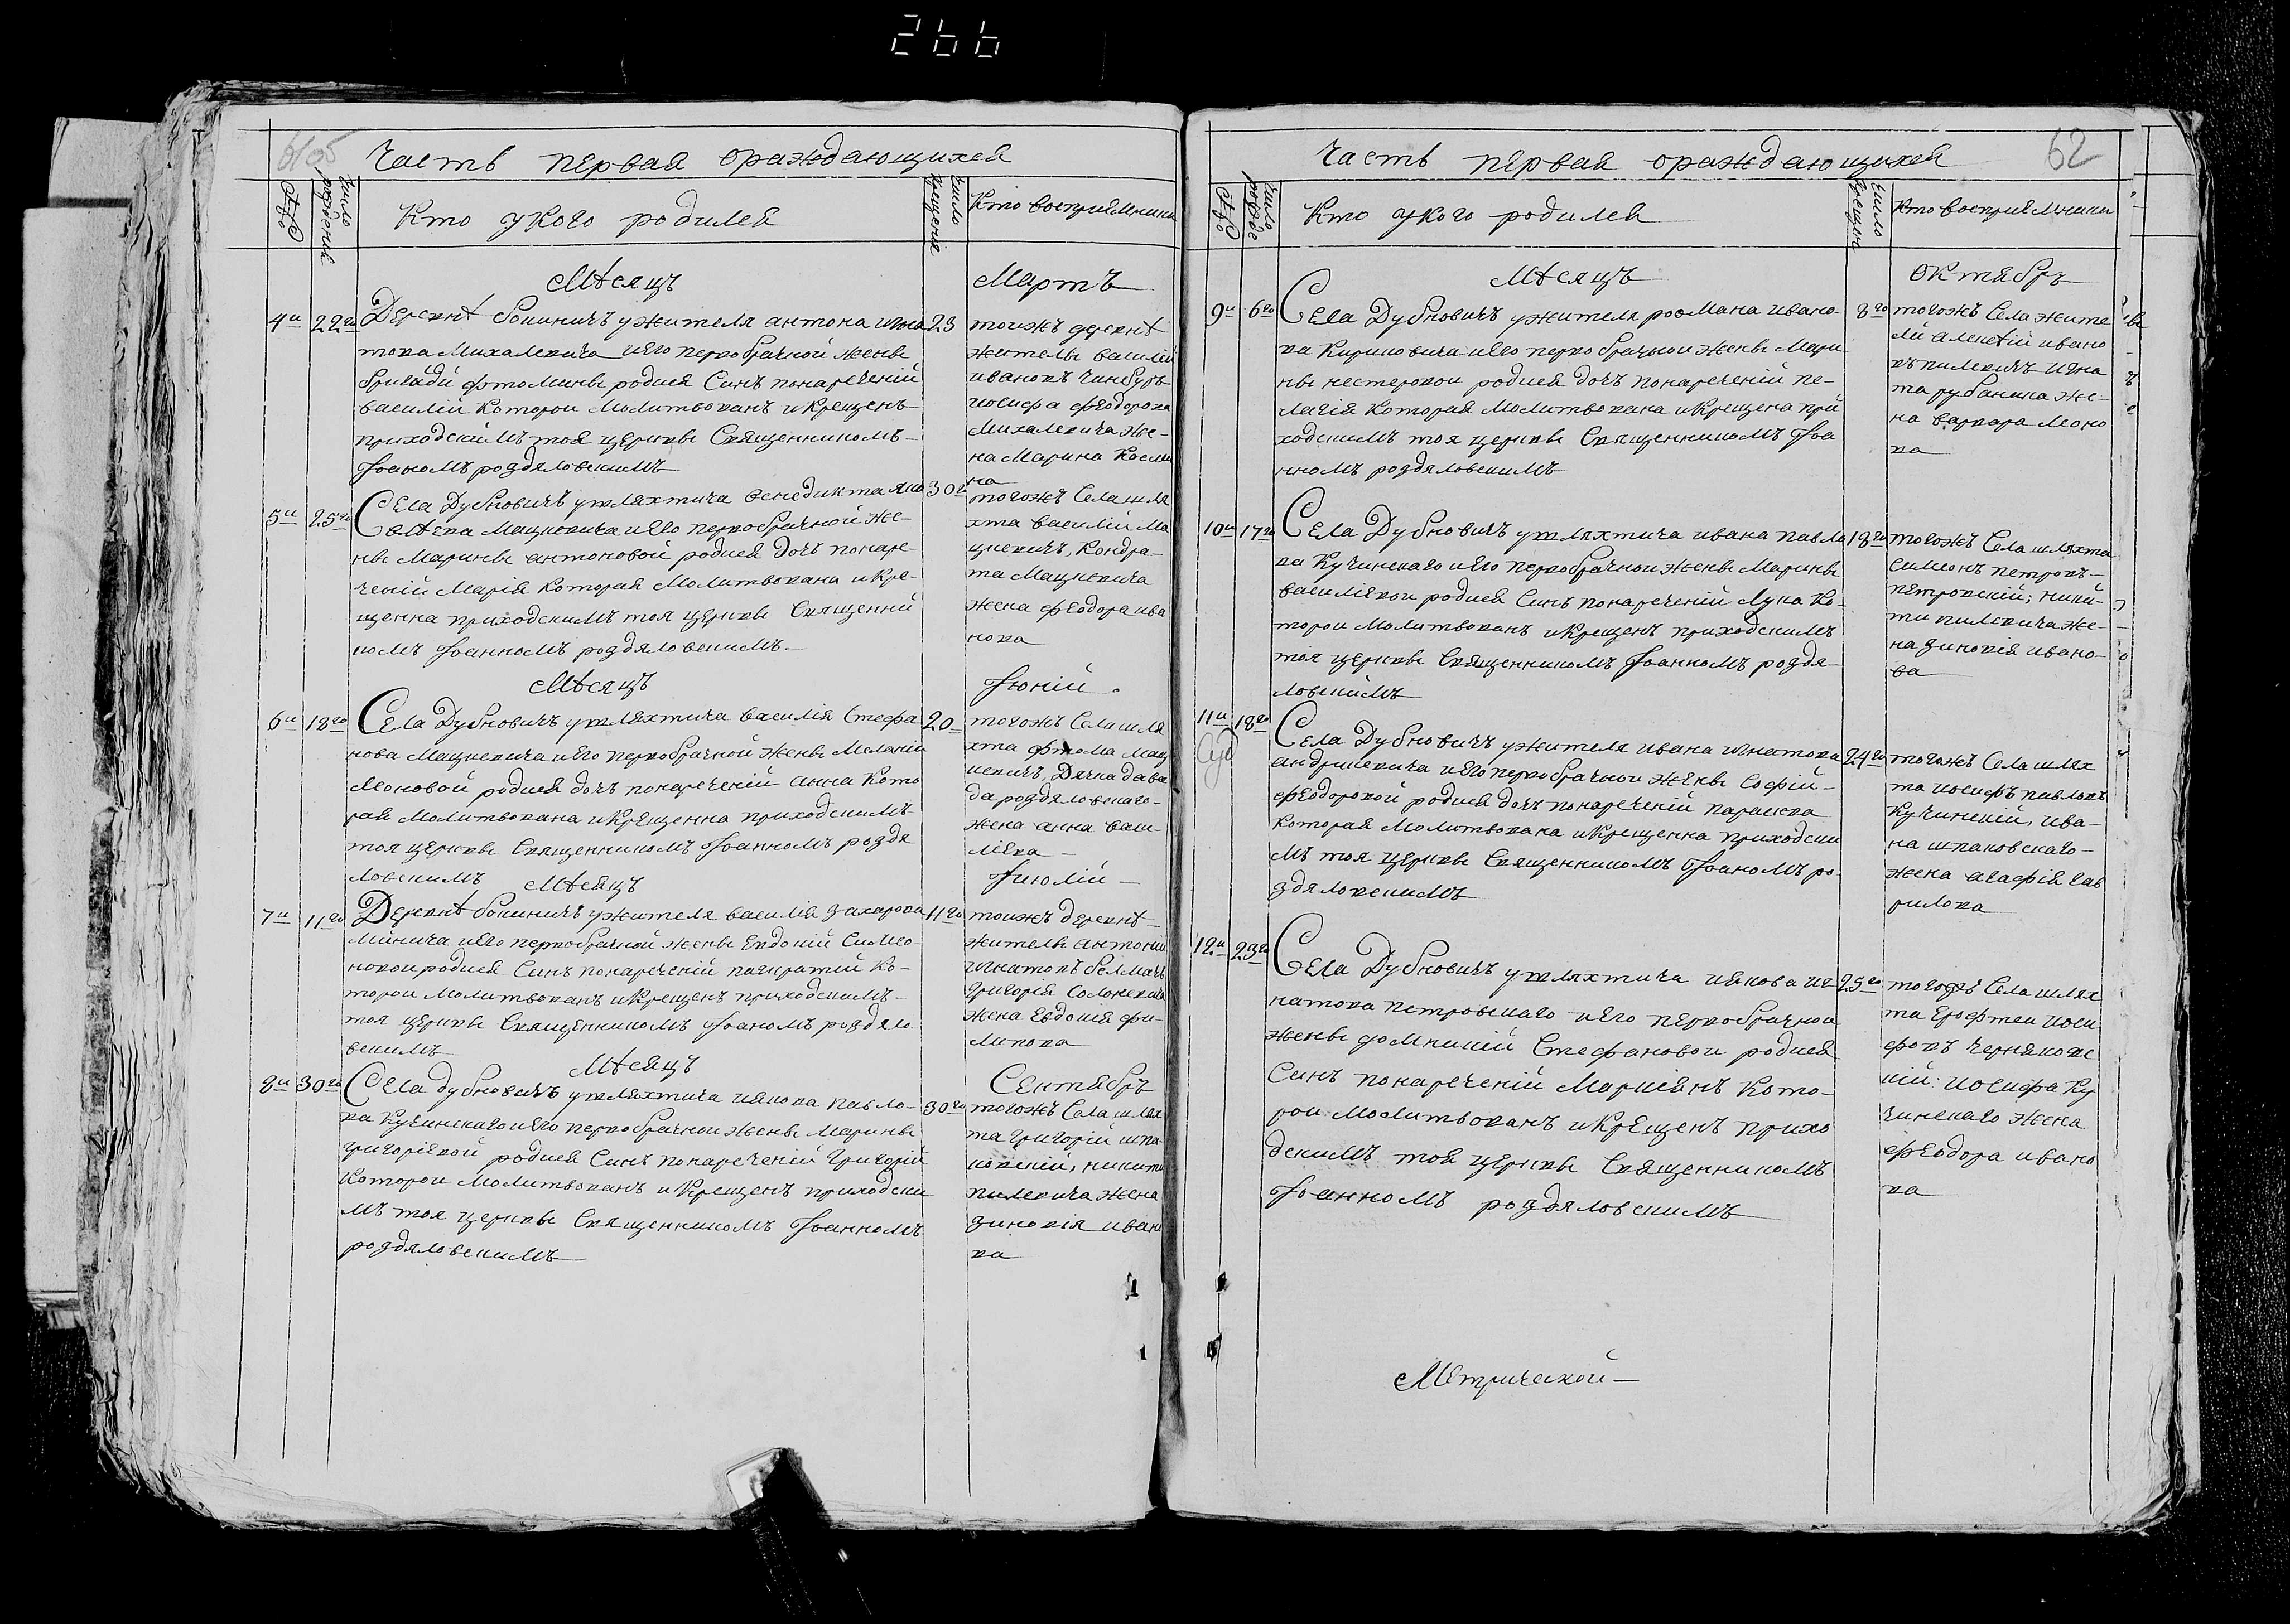 266
Часть первая ораждающихся
Кто укого родился
Кто восприемники
Мѣсяцъ
Мартъ
4и 22го
Деревнѣ Бокиничъ ужителя антона игна
това Михалевича иего первобрачной женѣ
родися Синъ понареченій
василій которои Молитвованъ икрещенъ
приходскимъ тоя церкви Священникомъ
Іоаномъ роздяловскимъ
23
тоижъ деревнѣ
жители василій
ивановъ
иосифа феодорова
Михалевича же-
на Марина Косми
на
5и 25го
Села Дубновичъ ушляхтича венедикта
Мацкевича иего первобрачной же-
нѣ Маринѣ антоновой родися дочъ понаре-
ченій Марія которая Молитвована икре-
щенна приходскимъ тоя церкви Священни
комъ Іоанномъ роздяловскимъ
30го
тогожъ Села шля
хта василій Ма
цкевичъ, Кондра-
та Мацкевича
жена феодора ива
нова
Мѣсяцъ
Іюній
6и 18го
Села Дубновичъ ушляхтича василія Стефа
нова Мацкевича иего первобрачной женѣ Меланіи
Леоновой родися дочъ понареченій анна кото
рая Молитвована икрещенна приходскимъ
тоя церкви Священникомъ Іоанномъ роздя
ловскимъ
20
тогожъ Села шля
хта фтома Мац
кевичъ, Дячка дави
да роздяловскаго
жена анна васи-
лієва
Мѣсяцъ
Іиюлій
7и 11го
Деревнѣ Бокиничъ ужителя василія захарова
Минича иего первобрачной женѣ Евдокіи Симео-
новои родися Синъ понареченій панкратій ко-
торои Молитвованъ икрещенъ приходскимъ
тоя церкви Священникомъ Іоаномъ роздяло
вскимъ
11го
тоижъ деревнѣ
жители антоній
игнатовъ
григорія Солоневича
жена Евдокія фи-
липова
Мѣсяцъ
Сентябрь
8и 30го
Села дубновичъ ушляхтича иякова павло-
ва Кучинскаго иего первобрачнои женѣ Маринѣ
григорієвой родися Синъ понареченій григорій
которои Молитвованъ икрещенъ приходски
мъ тоя церкви Священникомъ Іоанномъ
роздяловскимъ
30го
тогожъ Села шлях
та григорій шпа
ковскій, никити
пилевича жена
зиновія ивано
ва
62
Часть первая ораждающихся
Кто укого родился
Кто восприемники
Мѣсяцъ
Октябрь
9и 6го
Села Дубновичъ ужителя романа ивано-
ва Кириловича иего первобрачнои женѣ Мари
нѣ нестеровои родися дочъ понареченій пе-
лагія Которая Молитвована икрещена при
ходскимъ тоя церкви Священникомъ Іоа
нномъ роздяловскимъ
8го
тогожъ Села жите
лй алексѣй ивано
въ пилевичъ игна
та рубаника же-
на варвара Леоно
ва
10и 17го
Села Дубновичъ ушляхтича ивана павло
ва Кучинскаго иего первобрачнои женѣ Маринѣ
василієвои родися Синъ понареченій Лука ко-
торои Молитвованъ икрещенъ приходскимъ
тоя церкви Священникомъ Іоанномъ роздя-
ловскимъ
18го
тогожъ Села шляхта
Симеонъ петровъ
петровскій, ники-
ти пилевича же-
на зиновія ивано-
ва
11и 18го
Села Дубновичъ ужителя ивана игнатова
андриевича иего первобрачнои женѣ Софіи
феодоровой родися дочъ понареченій параскева
которая Молитвована икрещенна приходски
мъ тоя церкви Священникомъ Іоаномъ ро-
здяловскимъ
24го
тогожъ Села шлях
та иосифъ павловъ
Кучинскій, ива-
на шпаковскаго
жена агафія гав
рилова
12и 23го
Села Дубновичъ ушляхтича иякова иг-
натова петровскаго иего первобрачнои
женѣ домникіи Стефановои родися
Синъ понареченій Маркіянъ кото-
рои Молитвованъ икрещенъ прихо
дскимъ тоя церкви Священникомъ
Іоанномъ роздяловскимъ
25го
тогожъ Села шлях
та Ерофтеи иоси
фовъ черняковс
кій иосифа Ку
чинскаго жена
феодора ивано
ва
Метрической